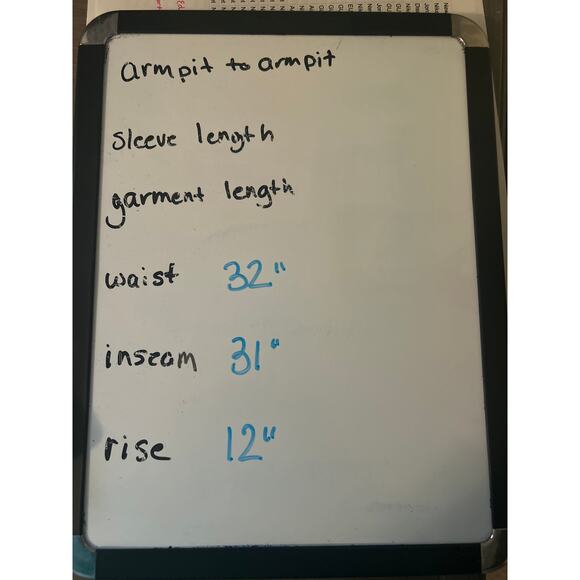 armpit to armpit
sleeve length
garment length
waist 32"
inseam 31"
rise 12"